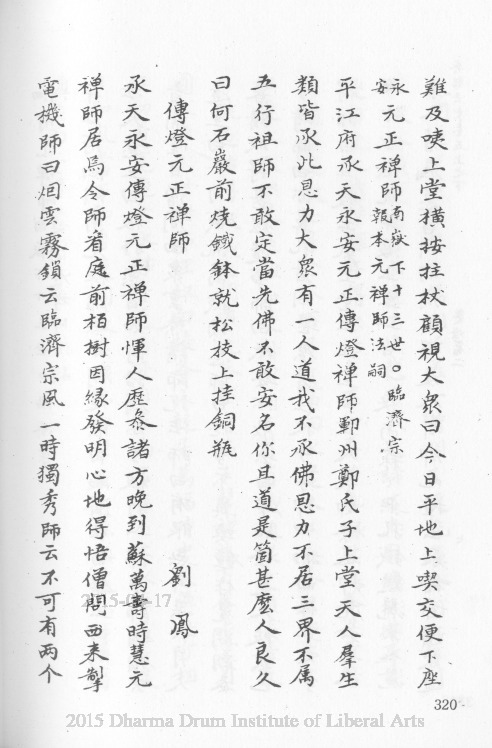 難及唊上堂橫按拄杖顧視大眾曰今日平地上喫交便下座
永安元正禪師南嶽下十三世○臨濟宗報本元禪師法嗣
平江府承天永安元正傳燈禪師鄆州鄭氏子上堂天人羣生
類皆承此恩力大眾有一人道我不承佛恩力不居三界不属
五行祖師不敢定當先佛不敢安名你且道是箇甚麼人良久
曰何石巖前燒鐵鉢就松枝上挂銅瓶
傳燈元正禪師 劉鳳
承天永安傳燈元正禪師惲人歷叅諸方晚到蘇萬壽時慧元
禪師居焉令師看庭前栢樹因緣發明心地得悟僧問西来掣
電機師曰烟雲霧鎖云臨濟宗風一時獨秀師云不可有两个
320
2015-09-17
2015 Dharma Drum Institute of Liberal Arts